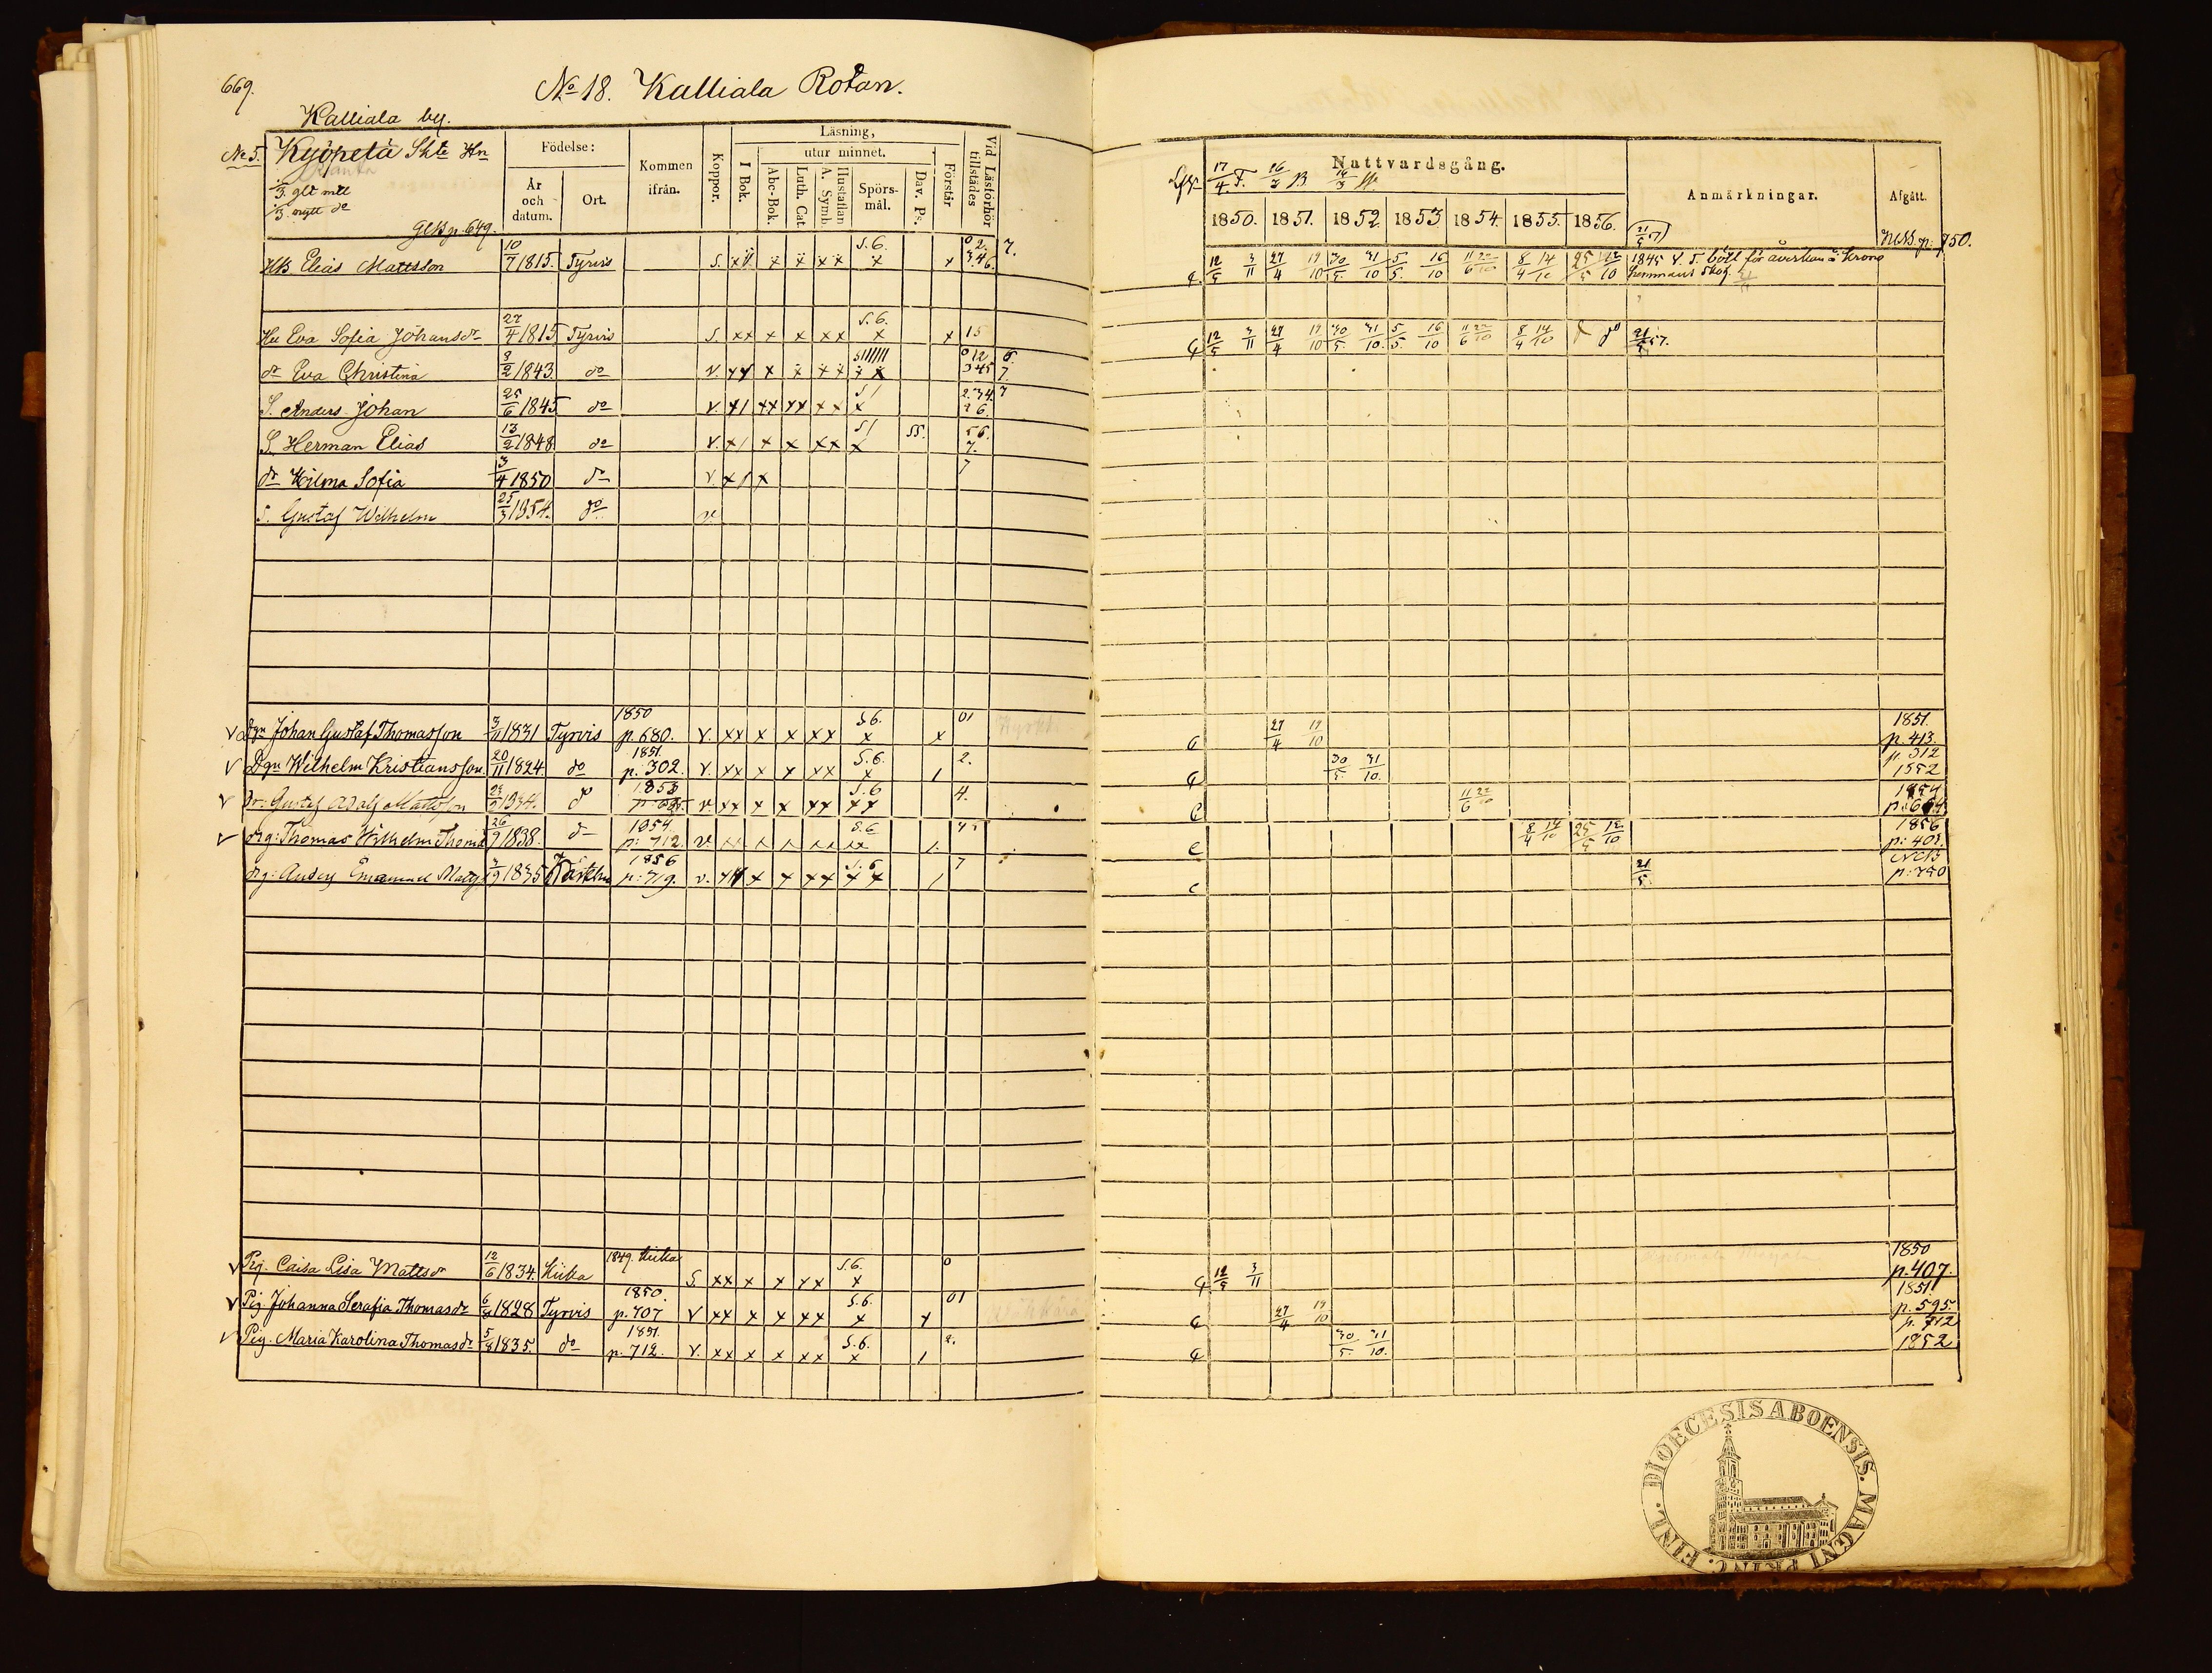 669.
No 18. Kalliala Rotan.
Kalliala by.
No 5. Kyöpelä Skte Hn
3 glt mtl
3 nytt do
GlKB p. 649.
Födelse:
År och datum.
Ort.
Kommen ifrån.
Koppor.
Läsning,
I Bok.
utur minnet.
Abc-Bok.
Luth. Cat
A. Symb.
Hustaflan
Spörsmål.
Dav. Ps.
Förstår
Vid Läsförhör tillstädes
Nattvardsgång.
17/4 F. 16/3 B 14/3
1850. 1851. 1852. 1853 1854. 1855. 1856.
Anmärkningar.
Afgått.
NKB. p: 750.
Elias Mattsson 10/7 1815. Tyrvis S. x x x x x S.6. x x 0 2. 3.4.6. 7. 12/5 3/11 27/4 19/10 30/5. 31/10 5/5. 16/10 11/6 22/10 8/4 14/10 25/5 12/10 1845 V. T. bött för åverkan å krono hemmans skog.
Hu Eva Sofia Johansdr 27/4 1815 Tyrvis S. xx x x xx S.6. x x 15 12/5 3/11 27/4 19/10 30/5. 31/10. 5/5. 16/10 11/6 22/10 8/4 14/10 do 21/5 57.
dr Eva Christina 8/2 1843. do V. xx x x xx 0 12 345 6. 7.
S. Anders Johan 25/6 1845 do V. x/ xx xx xx x 2.34 7 2 6.
S. Herman Elias 13/2 1848 do V. x/ x x xx x SS. 56. 7.
dr Hilma Sofia 3/4 1850 do V. x / x 7
S. Gustaf Wilhelm 25/3 1854. do v.
V Dgn Johan Gustaf Thomasson 3/11 1831 Tyrvis 1850 p. 680. V. xx x x xx S.6. x x 01 27/4 19/10 1851. p. 413.
V Dgn Wilhelm Kristiansson 20/11 1824. do 1851. p. 302. V. xx x x xx S.6. x / 2. 30/5. 31/10. p. 312 1852
V Gustaf Adolf Mattsson 1834. do 1853 V. xx x x xx S.6 xx 4. 11/6 22/10 1854
V drg: Thomas Wilhelm Thoma 26/9 1838. do 1854. p: 712. v. xx x x xx S.6 xx /. 8/4 14/10 25/5 12/10 1856 p: 401.
drg: Anders Emanuel Matts 1835 1856 p: 719. v. xx x x xx S.6 xx / 7 21/5. NKB p: 740
V Pig. Caisa Lisa Mattsdr 12/6 1834. Kiika 1849. Kiika S xx x x xx S.6. x 0 12/5 3/11 1850 p. 407.
V Pig. Johanna Serafia Thomasdr 1828 Tyrvis 1850. p. 707 V xx x x xx S.6. x x 01 27/4 19/10 1851. p. 595.
V Pig. Maria Karolina Thomasdr 1835. do 1851. p. 712. V. xx x x xx S.6. x / 2. 30/5. 31/10. p. 712 1852
FINL. DIOECESIS ABOENSIS. MAGNI PRINC.